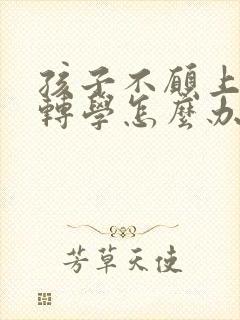 孩子不願上
轉學怎麼办
芳草天使